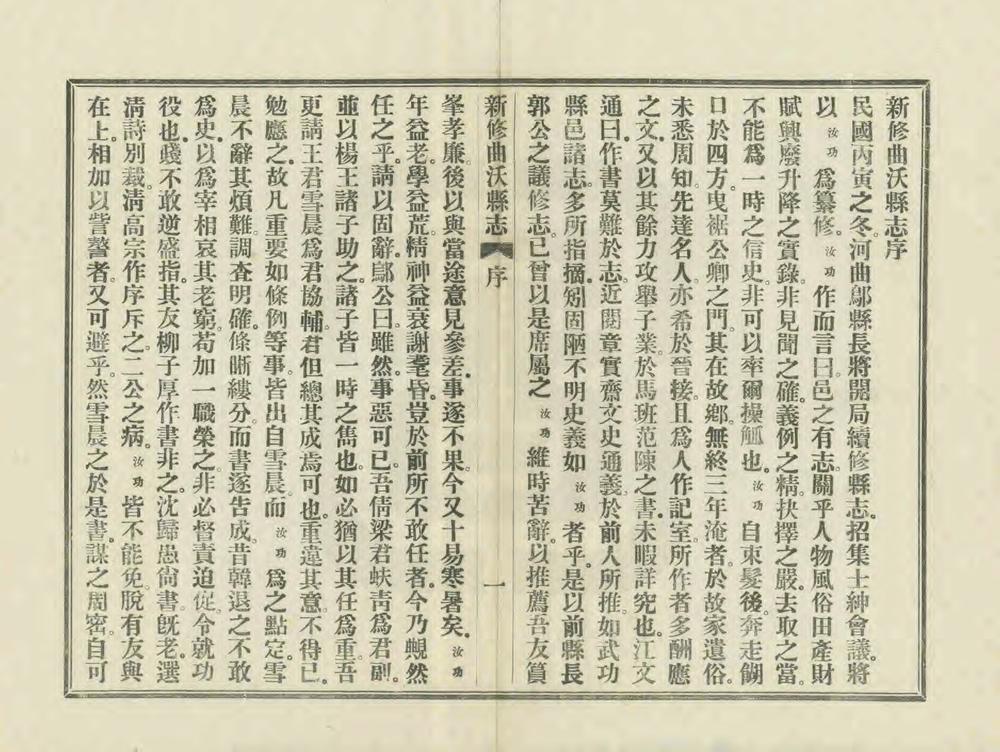 新修曲沃縣志序
民國丙寅之冬。河曲鄔縣長將開局續修縣志。招集士紳會議。將
以汝功爲纂修。汝功作而言曰。邑之有志。關乎人物風俗田產財
賦興廢升降之實錄。非見聞之確。義例之精。抉擇之嚴。去取之當。
不能爲一時之信史。非可以率爾操觚也。汝功自束髮後。奔走餬
口於四方。曳裾公卿之門。其在故鄉。無終三年淹者。於故家遺俗。
未悉周知。先達名人。亦希於晉接。且爲人作記室。所作者多酬應
之文。又以其餘力攻舉子業。於馬班范陳之書。未暇詳究也。江文
通曰。作書莫難於志。近閱章實齋文史通義。於前人所推。如武功
縣邑諸志。多所指摘。矧固陋不明史義如汝功者乎。是以前縣長
郭公之議修志。已曾以是席屬之汝功。維時苦辭。以推薦吾友貟
新修曲沃縣志
序
一
峯孝廉。後以與當途意見參差。事遂不果。今又十易寒暑矣。汝功
年益老。學益荒。精神益衰謝耄昏。豈於前所不敢任者。今乃覥然
任之乎。請以固辭。鄔公曰。雖然。事惡可已。吾倩梁君蚨青爲君副。
並以楊王諸子助之。諸子皆一時之雋也。如必猶以其任爲重。吾
更請王君雪晨爲君協輔。君但總其成焉可也。重違其意。不得已。
勉應之。故凡重要如條例等事。皆出自雪晨。而汝功爲之點定。雪
晨不辭其煩難。調查明確。條晰縷分。而書遂告成。昔韓退之不敢
爲史。以爲宰相哀其老窮。苟加一職榮之。非必督責迫促。令就功
役也。賤不敢逆盛指。其友柳子厚作書非之。沈歸愚尙書。旣老。選
淸詩別裁。淸高宗作序斥之。二公之病。汝功皆不能免。脫有友與
在上。相加以訾謷者。又可避乎。然雪晨之於是書。謀之周密。自可